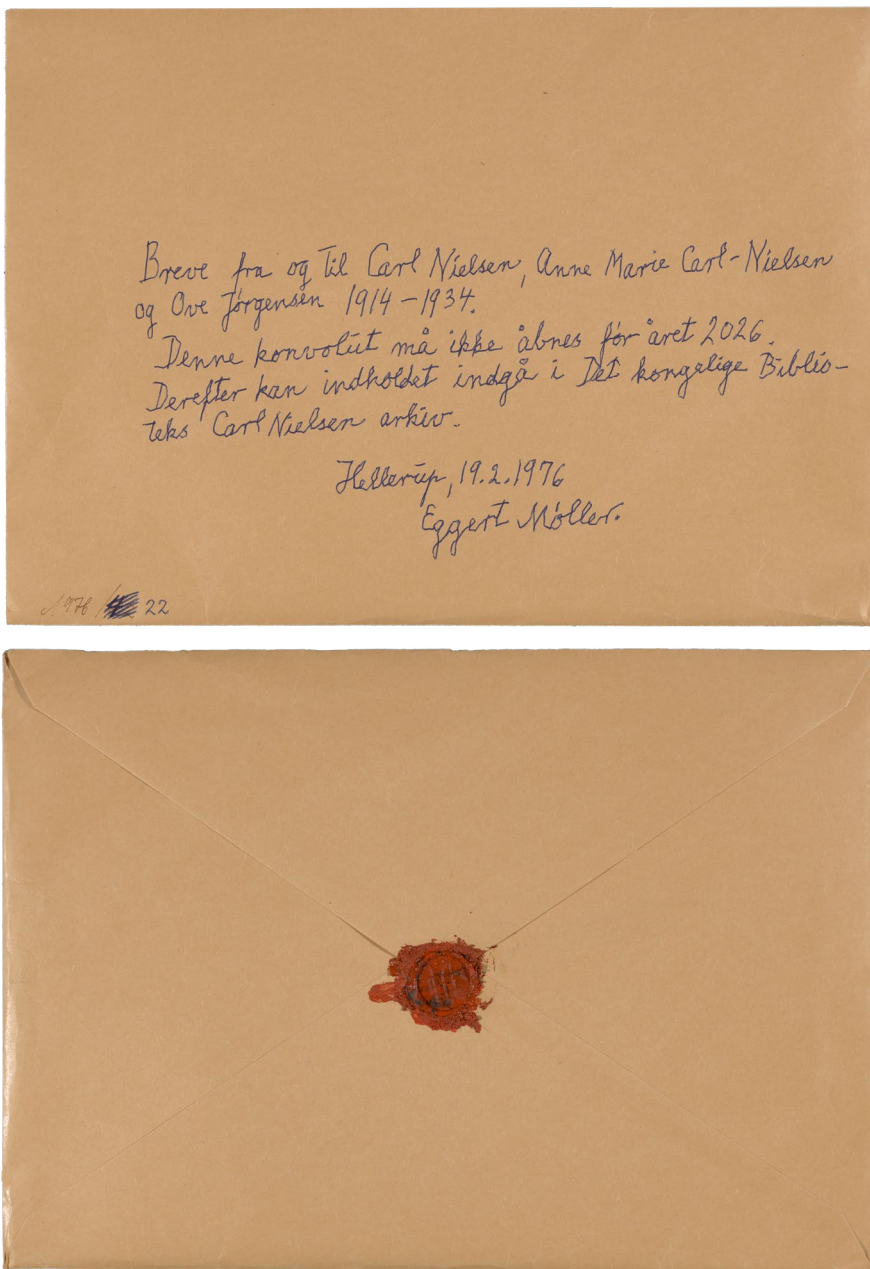 Breve fra og til Carl Nielsen, Anne Marie Carl-Nielsen
og Ove Jørgensen 1914-1934.
Denne konvolut må ikke åbnes før året 2026.
Derefter kan indholdet indgå i Det kongelige Biblio-
teks Carl Nielsen arkiv.
Hellerup, 19.2.1976
Eggert Møller.
1976/ 22